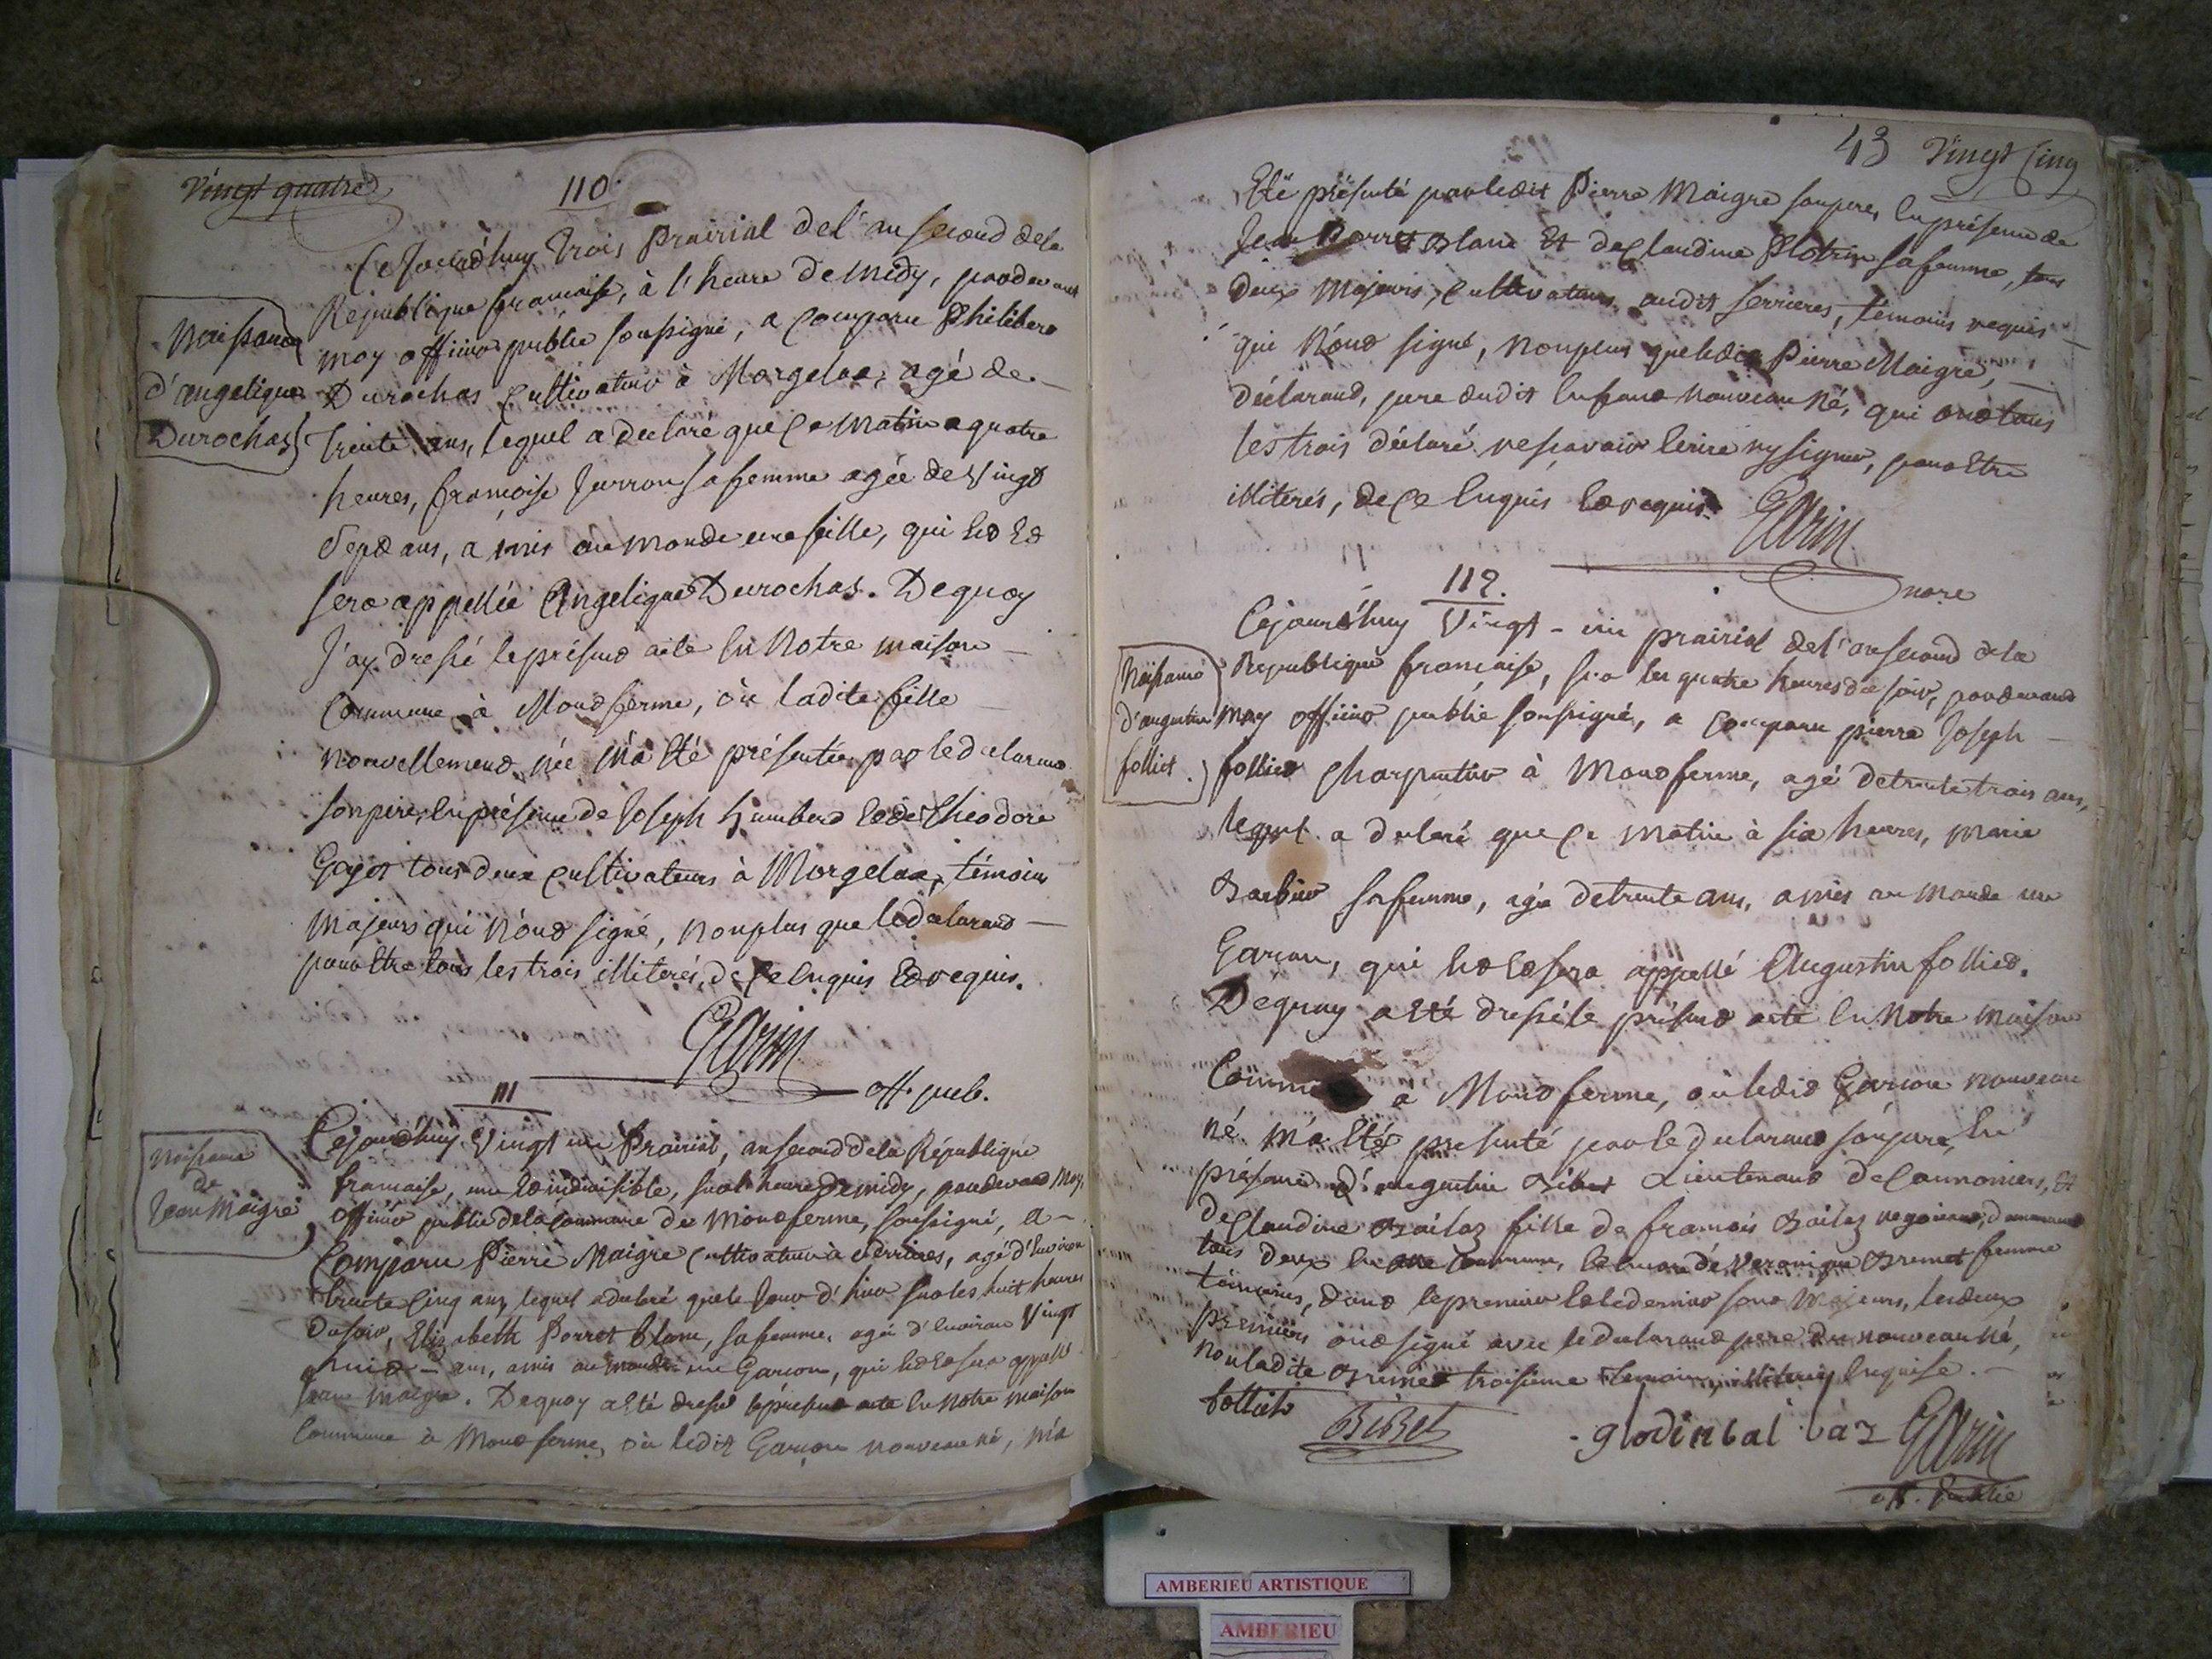 Vingt quatre
110.
Ce jourd'huy trois Prairial de l'an second de la
Republique francaise, à l'heure de midy, pardevant
moy officier public soussigné, a comparu Philibert
Naissance
d'angelique
Durochas
Durochas cultivateur à Morgelas, agé de
trente ans, lequel a declaré que ce matin a quatre
heures, françoise Jurron sa femme agée de Vingt
Sept ans, a mis au monde une fille, qui est Et
sera appellée Angelique Durochas. De quoy
J'ay dressé le présent acte En Notre maison
Commune à Montferme, où ladite fille
nouvellement née m'a Eté présentée par le declarant
son pere, En présence de Joseph humbert Et de Théodore
Gojot tous deux cultivateurs à Morgelas, témoins
majeurs qui n'ont signé, non plus que le declarant
pour Etre tous les trois illiterés, de ce Enquis Et requis.
Garin
off. pub.
111
Cejourd'huy Vingt un Prairial, an second de la République
Naissance
de
Jean Maigre
francaise, une Et indivisible, sur l'heure de midy, pardevant Moy,
officier public de la Commune de Montferme, soussigné, a
Comparu Pierre Maigre Cultivateur à Serrieres, agé d'Environ
trente Cinq ans, lequel a declaré que le Jour d'hier sur les huit heures
du soir, Elizabeth Perret Blanc, sa femme, agée d'Environ Vingt
huit ans, a mis au monde un Garcon, qui est Et sera appellé
Jean Maigre. De quoy a Eté dressé le présent acte En Notre maison
Commune à Montferme, où ledit Garcon nouveau né, m'a
43 Vingt Cinq
Eté présenté par ledit Pierre Maigre son pere, En présence de
Jean Perret Blanc Et de Claudine Plotrin sa femme, tous
deux Majeurs, Cultivateurs audit Serrieres, témoins requis
qui N'ont signé, non plus que ledit Pierre Maigre,
déclarant, pere dudit Enfant nouveau né, qui ont tous
les trois déclaré ne savoir Ecrire ny signer, pour Etre
illiterés, de ce Enquis Et requis. Garin
nore
112.
Cejourd'huy Vingt-un prairial de l'an second de la
Naissance
d'augustin
folliet.
Republique francaise, sur les quatre heures du soir, pardevant
moy officier public soussigné, a comparu pierre Joseph
folliet Charpentier à Montferme, agé de trente trois ans,
lequel a declaré que ce matin à six heures, Marie
Barbier sa femme, agée de trente ans, a mis au monde un
Garcon, qui est Et sera appellé Augustin folliet.
De quoy a Eté dressé le présent acte En Notre maison
Commune à Montferme, où ledit Garcon nouveau
né m'a Eté presenté par le declarant son pere, En
présence d'augustin Bibet Lieutenant de Cannoniers, Et
de Claudine Bailaz fille de francois Bailaz negociant, demeurant
tous deux En cette Commune, Et encore de Veronique Bremet femme
témoins, dont le premier Et le dernier sont Majeurs, les deux
premiers ont signé avec le declarant pere du nouveau né,
non ladite Bremet troisieme temoin, illiterée Enquise.
folliet
Bibet
glodin balaz Garin
off. Public
AMBERIEU ARTISTIQUE
AMBERIEU